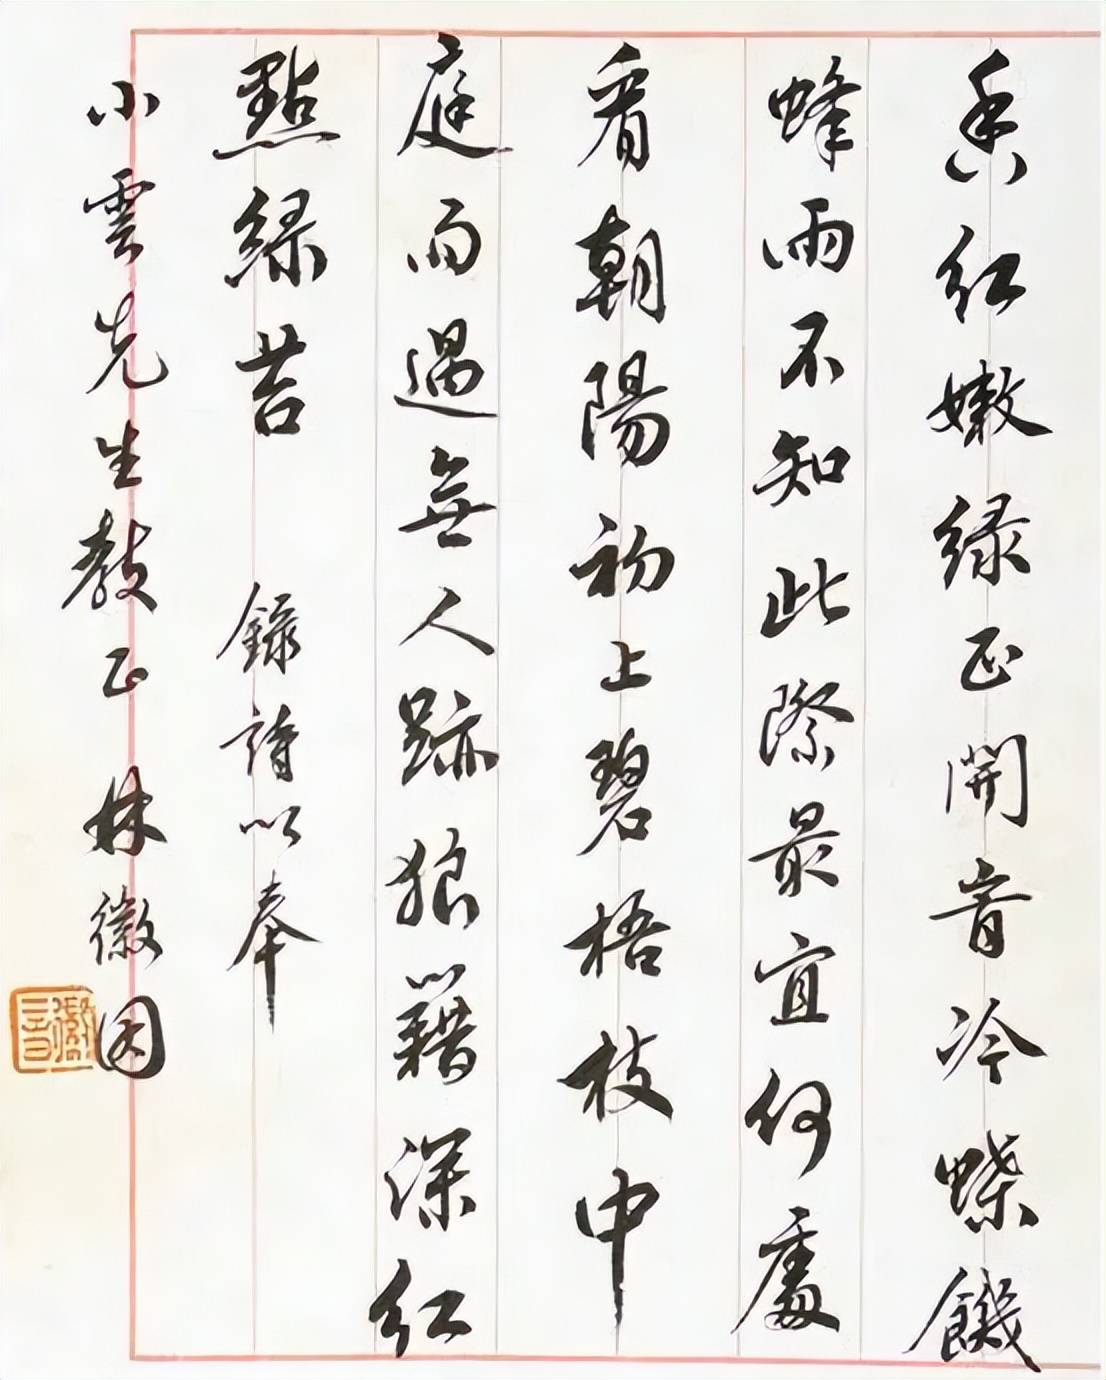 香紅嫩綠正開旹冷蝶饑
蜂兩不知此際最宜何處
看朝陽初上碧梧枝中
庭雨過無人跡狼籍深紅
點綠苔 錄詩以奉
小雲先生教正 林徽因
徽音